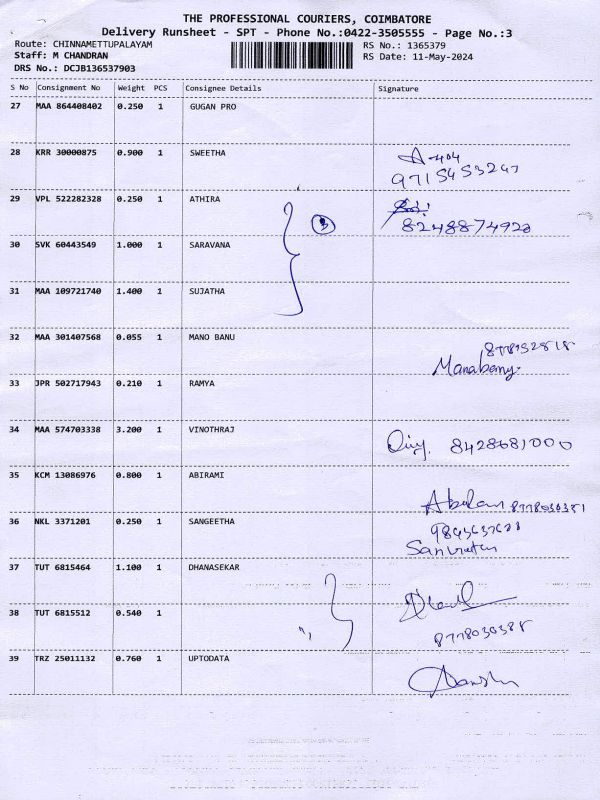 THE PROFESSIONAL COURIERS, COIMBATORE
Delivery Runsheet - SPT - Phone No.:0422-3505555 - Page No.:3
Route: CHINNAMETTUPALAYAM RS No.: 1365379
Staff: M CHANDRAN RS Date: 11-May-2024
DRS No.: DCJB136537903
S No Consignment No Weight PCS Consignee Details Signature
27 MAA 864408402 0.250 1 GUGAN PRO
28 KRR 30000875 0.900 1 SWEETHA A-404
9715453247
29 VPL 522282328 0.250 1 ATHIRA
8248874922
3
30 SVK 60443549 1.000 1 SARAVANA
31 MAA 109721740 1.400 1 SUJATHA
32 MAA 301407568 0.055 1 MANO BANU
33 JPR 502717943 0.210 1 RAMYA
34 MAA 574703338 3.200 1 VINOTHRAJ 8428681000
35 KCM 13086976 0.800 1 ABIRAMI
8778030381
36 NKL 3371201 0.250 1 SANGEETHA
37 TUT 6815464 1.100 1 DHANASEKAR
38 TUT 6815512 0.540 1 ",
8778030388
39 TRZ 25011132 0.760 1 UPTODATA